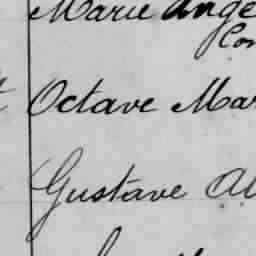 Marie Ange
Con
Octave Mar
Gustave Al